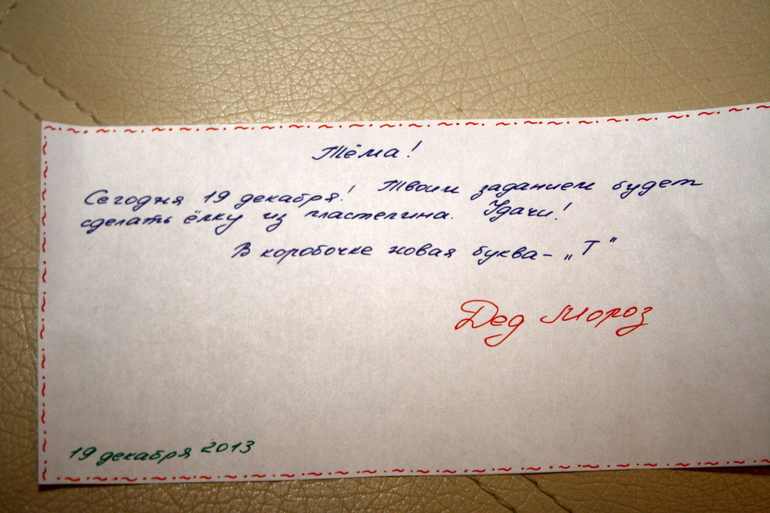 Тёма!
Сегодня 19 декабря! Твоим заданием будет
сделать ёлку из пластелина. Удачи!
В коробочке новая буква - „Т"
Дед Мороз
19 декабря 2013